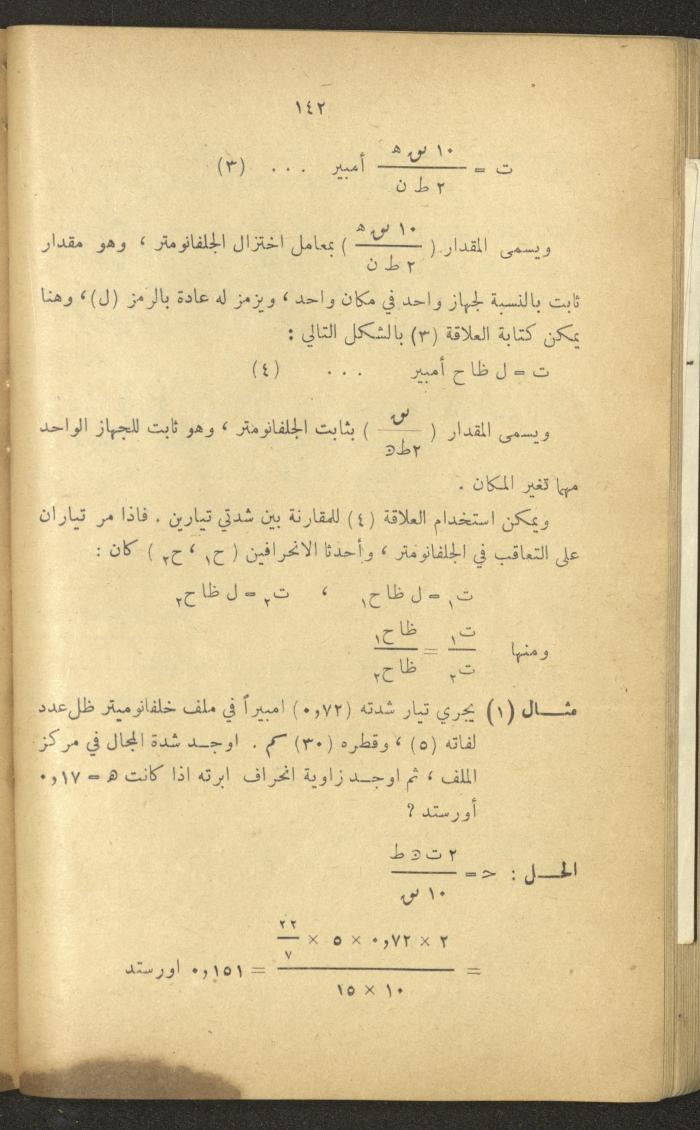 ١٤٢
ت = ١٠ نق ه / ٢ ط ن أمبير . . . (٣)
ويسمى المقدار ( ١٠ نق ه / ٢ ط ن ) بمعامل اختزال الجلفانومتر ، وهو مقدار
ثابت بالنسبة لجهاز واحد في مكان واحد ، ويزمز له عادة بالرمز (ل) ، وهنا
يمكن كتابة العلاقة (٣) بالشكل التالي :
ت = ل ظا ح أمبير . . . (٤)
ويسمى المقدار ( نق / ٢ط ن ) بثابت الجلفانومتر ، وهو ثابت للجهاز الواحد
مهما تغير المكان .
ويمكن استخدام العلاقة (٤) للمقارنة بين شدتي تيارين . فاذا مر تياران
على التعاقب في الجلفانومتر ، وأحدثا الانحرافين ( ح₁ ، ح₂ ) كان :
ت₁ = ل ظا ح₁ ، ت₂ = ل ظا ح₂
ومنها ت₁ / ت₂ = ظا ح₁ / ظا ح₂
مثــال (١) يجري تيار شدته (٠,٧٢) امبيراً في ملف خلفانوميتر ظل عدد
لفاته (٥) ، وقطره (٣٠) سم . اوجــد شدة المجال في مركز
الملف ، ثم اوجــد زاوية انحراف ابرته اذا كانت ه = ٠,١٧
أورستد ؟
الحــل : ح = ٢ ت ن ط / ١٠ نق
= ٢ × ٠,٧٢ × ٥ × ٢٢/٧ / ١٠ × ١٥ = ٠,١٥١ اورستد